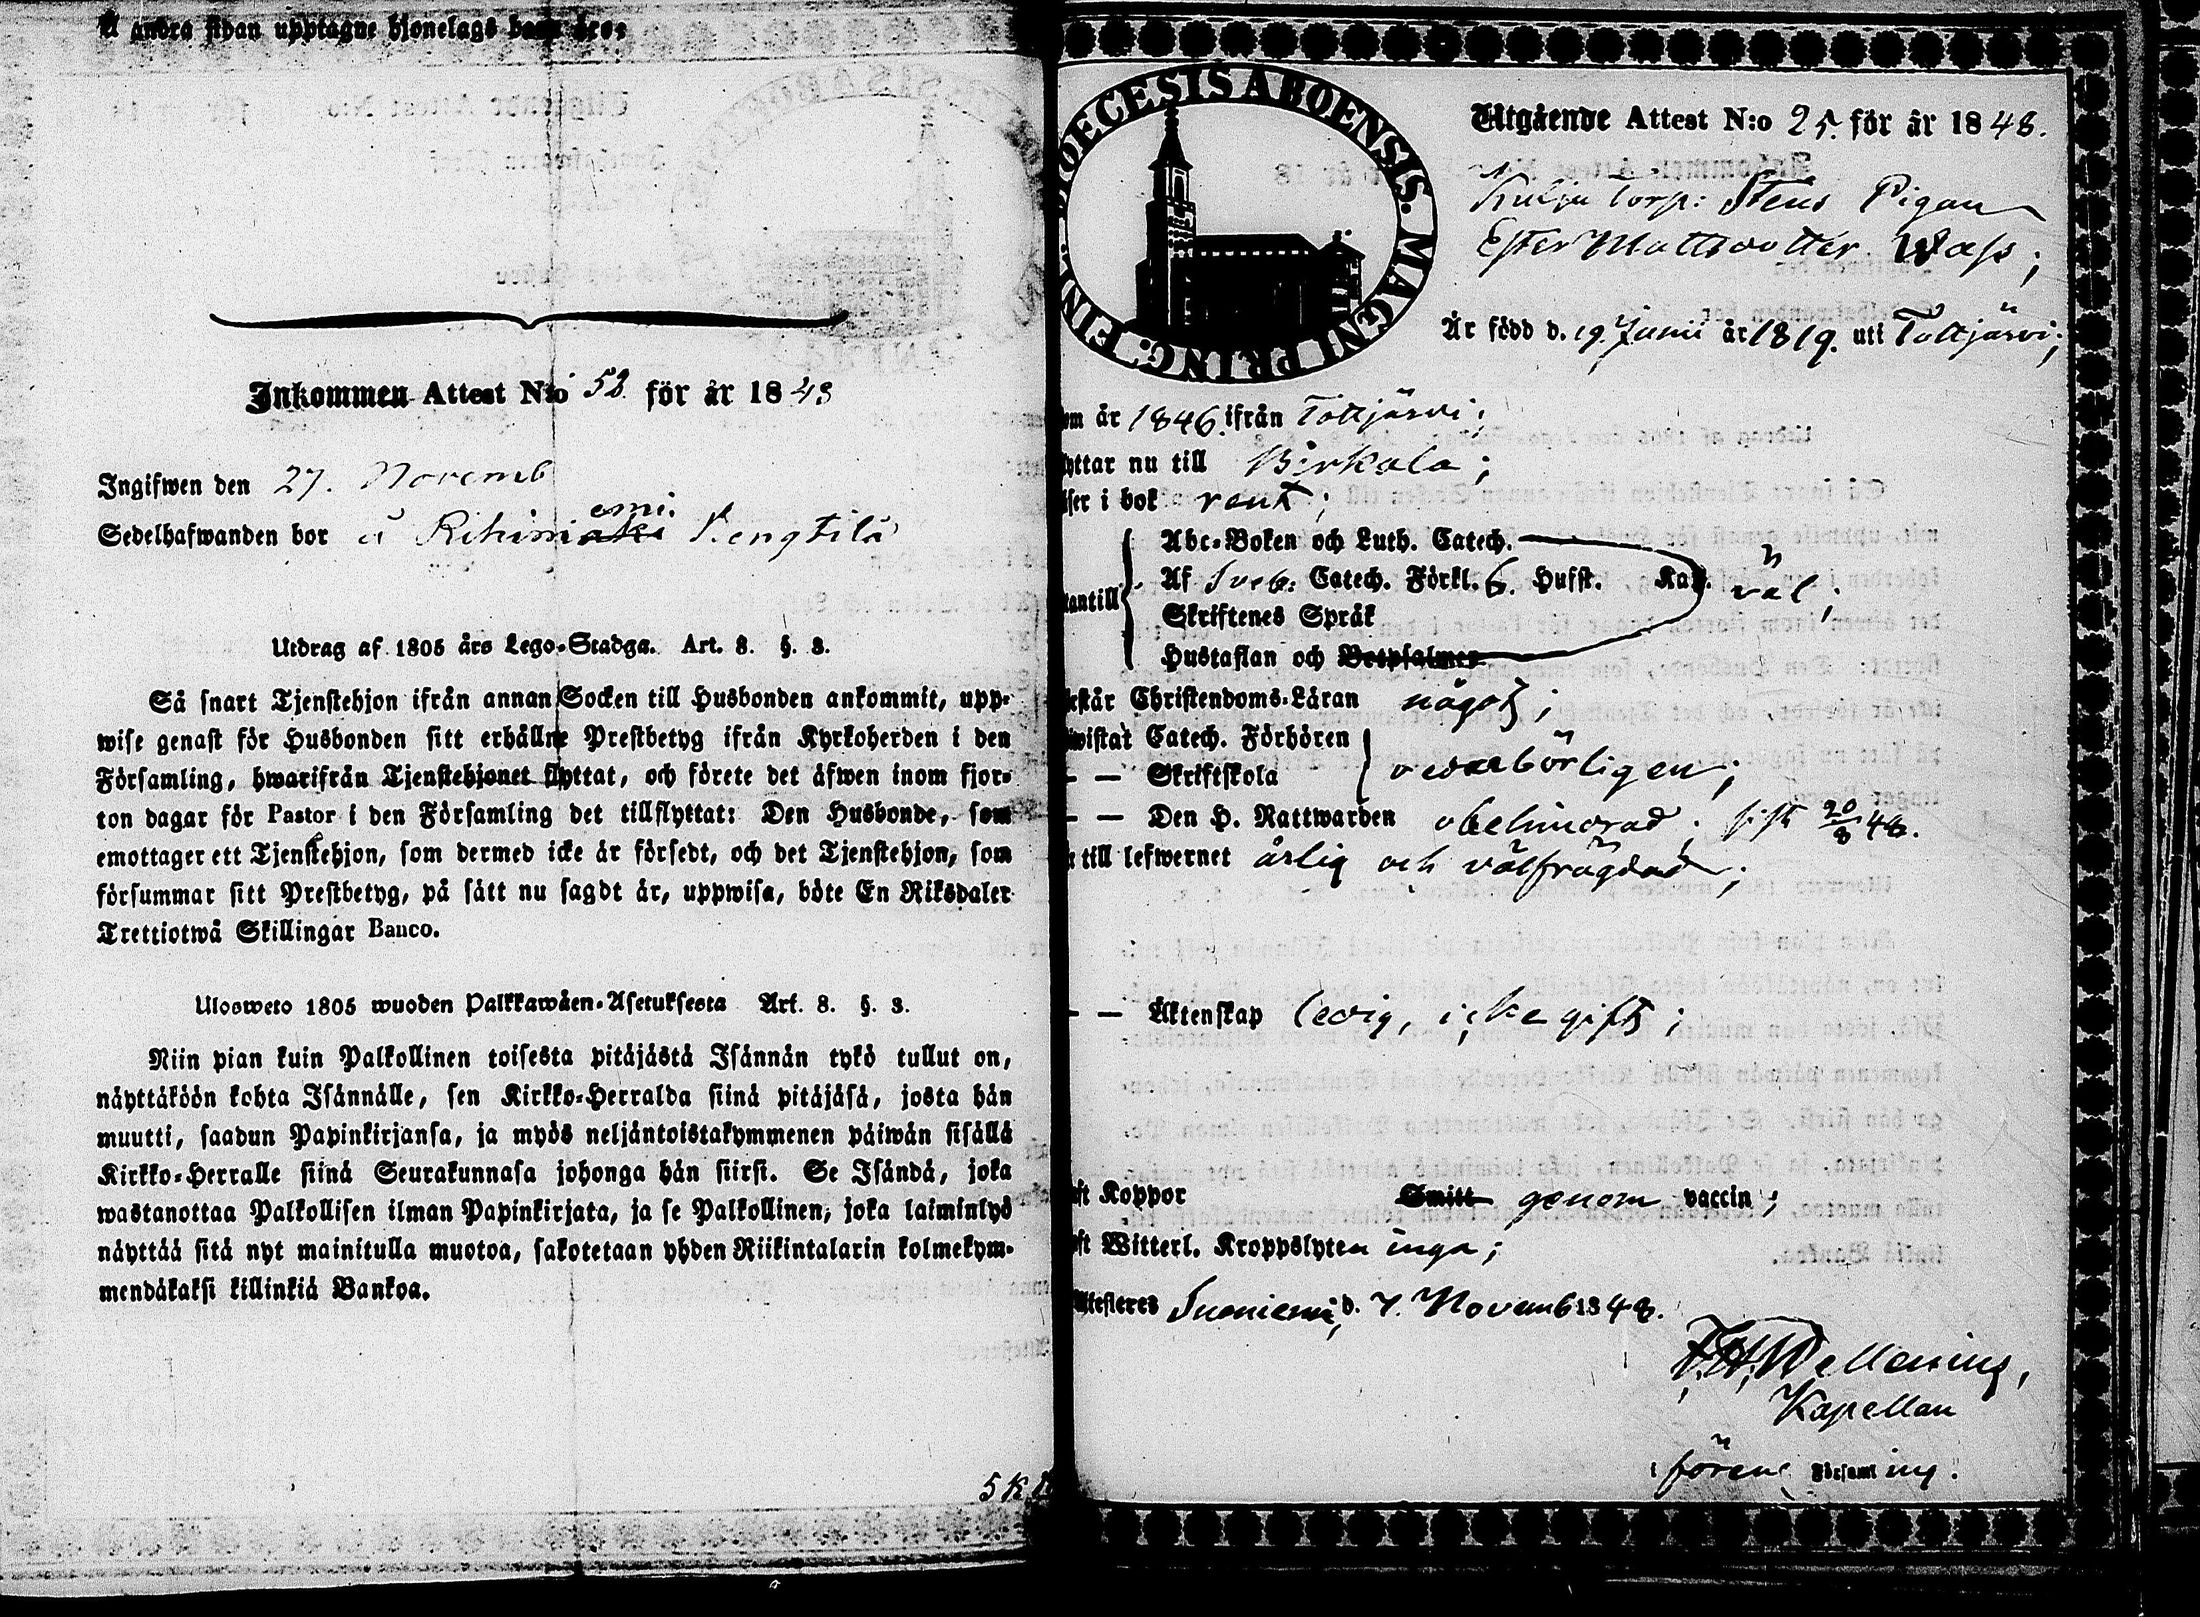 Å andra sidan upptagne hjonelags barn äro:
Inkommen Attest N:o 52 för år 1848
Ingifwen den 27. Novemb
emi.
Sedelhafwanden bor å Rihiniaki Kengtilä
Utdrag af 1805 års Lego-Stadga. Art. 8. §. 3.
Så snart Tjenstehjon ifrån annan Socken till Husbonden ankommit, upp-
wise genast för Husbonden sitt erhållne Prestbetyg ifrån Kyrkoherden i den
Församling, hwarifrån Tjenstehjonet flyttat, och förete det äfwen inom fjor-
ton dagar för Pastor i den Församling det tillflyttat: Den Husbonde, som
emottager ett Tjenstehjon, som dermed icke är försedt, och det Tjenstehjon, som
försummar sitt Prestbetyg, på sätt nu sagdt är, uppwisa, böte En Riksdaler
Trettiotwå Skillingar Banco.
Ulosweto 1805 wuoden Palkkawäen-Asetuksesta Art. 8. §. 3.
Niin pian kuin Palkollinen toisesta pitäjästä Isännän tykö tullut on,
näyttäköön kohta Isännälle, sen Kirkko-Herralda siinä pitäjäsä, josta hän
muutti, saadun Papinkirjansa, ja myös neljäntoistakymmenen päiwän sisällä
Kirkko-Herralle siinä Seurakunnasa johonga hän siirsi. Se Isändä, joka
wastanottaa Palkollisen ilman Papinkirjata, ja se Palkollinen, joka laiminlyö
näyttää sitä nyt mainitulla muotoa, sakotetaan yhden Riikintalarin kolmekym-
mendäkaksi killinkiä Bankoa.
5 K
DIOECESIS ABOENSIS. MAGNI PRINC. FIN.
Utgående Attest N:o 25. för år 1848.
Kulju Torp: Stens Pigan
Ester Mattsdotter Wass;
Är född d. 19. Junii år 1819. uti Tottjärvi;
om år 1846. ifrån Tottjärvi;
yttar nu till Birkala;
ser i bok rent;
Abc-Boken och Luth. Catech.
Af Sveb: Catech. Förkl. 6. Hufst. Kap. väl;
utantill
Skriftenes Språk
Hustaflan och Botpsalmer
rstår Christendoms-Läran något;
wistat Catech. Förhören
— — Skriftskola vederbörligen;
— — Den H. Nattwarden obehindrad; sist 20/8 48.
r till lefwernet ärlig och välfrägdad;
— — Äktenskap ledig, icke gift;
ft Koppor Smitt genom vaccin;
ft Witterl. Kroppslyten inga;
Attesteres Suoniemi, d. 7. Novemb 1848.
Kapellan
i fören. Församling.